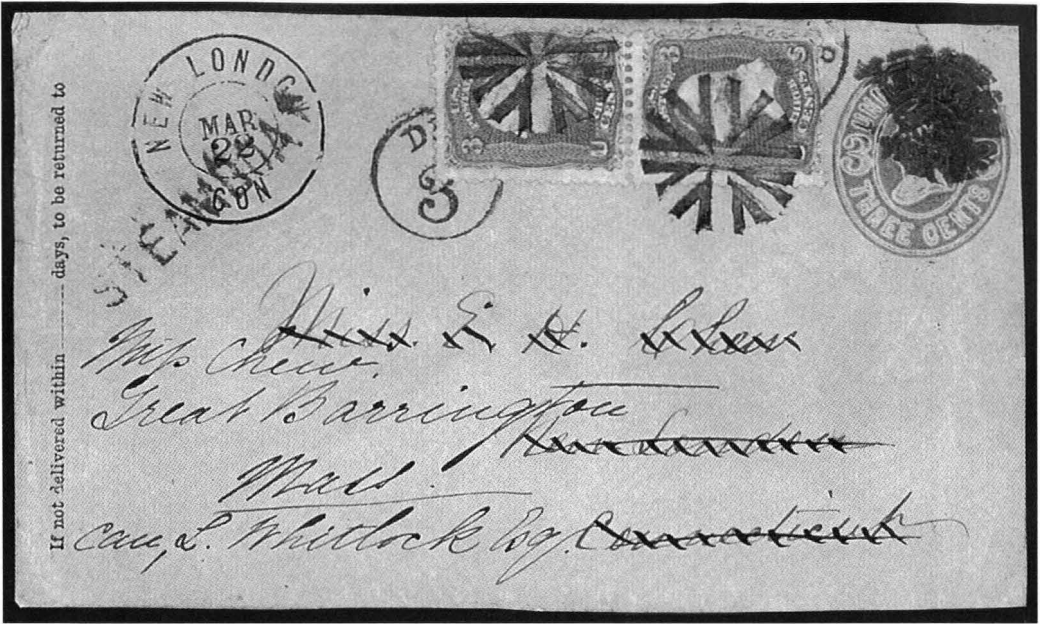 If not delivered within ______ days, to be returned to
NEW LONDON
MAR
22
CON
STEAMSHIP
3
3 U S
3 S
THREE CENTS
Miss E. H. Chew
Miss Chew.
Great Barrington
New London
Mass.
Care, L. Whitlock Esq.
Connecticut